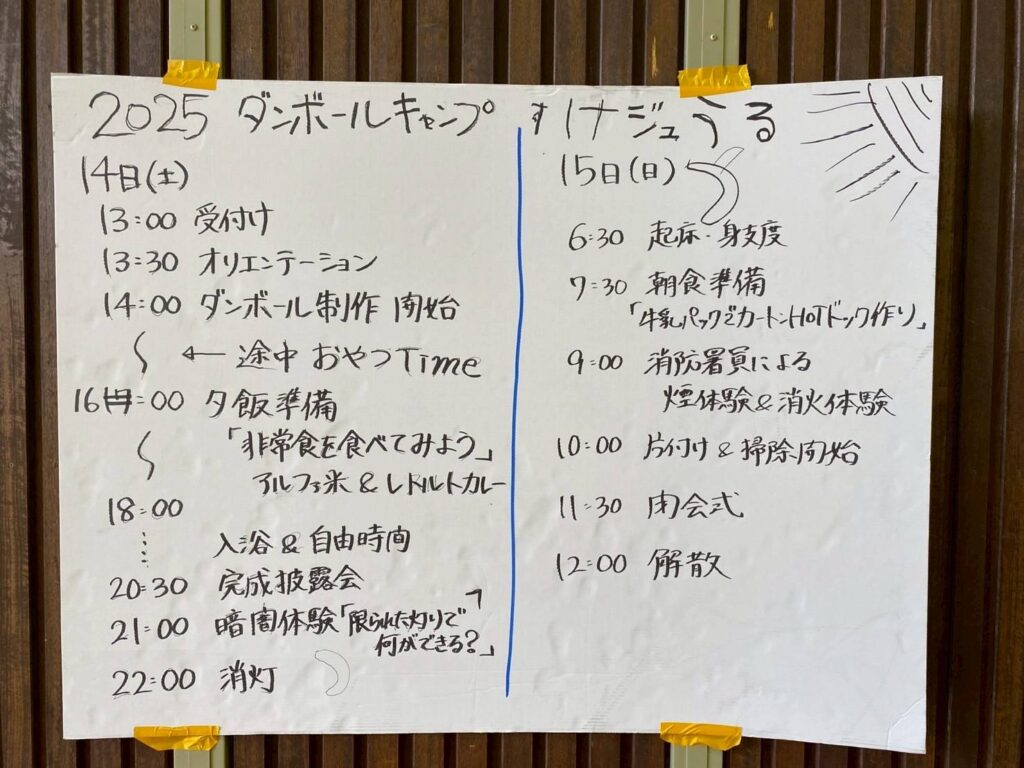 2025 ダンボールキャンプ すけナジュうる
14日(土)
13:00 受付け
13:30 オリエンテーション
14:00 ダンボール制作 開始
← 途中 おやつTime
16:00 夕飯準備
「非常食を食べてみよう」
アルファ米 & レトルトカレー
18:00
入浴 & 自由時間
20:30 完成披露会
21:00 暗闇体験「限られた灯りで
何ができる?」
22:00 消灯
15日(日)
6:30 起床・身支度
7:30 朝食準備
「牛乳パックでカートンHOTドック作り」
9:00 消防署員による
煙体験&消火体験
10:00 片付け & 掃除開始
11:30 閉会式
12:00 解散